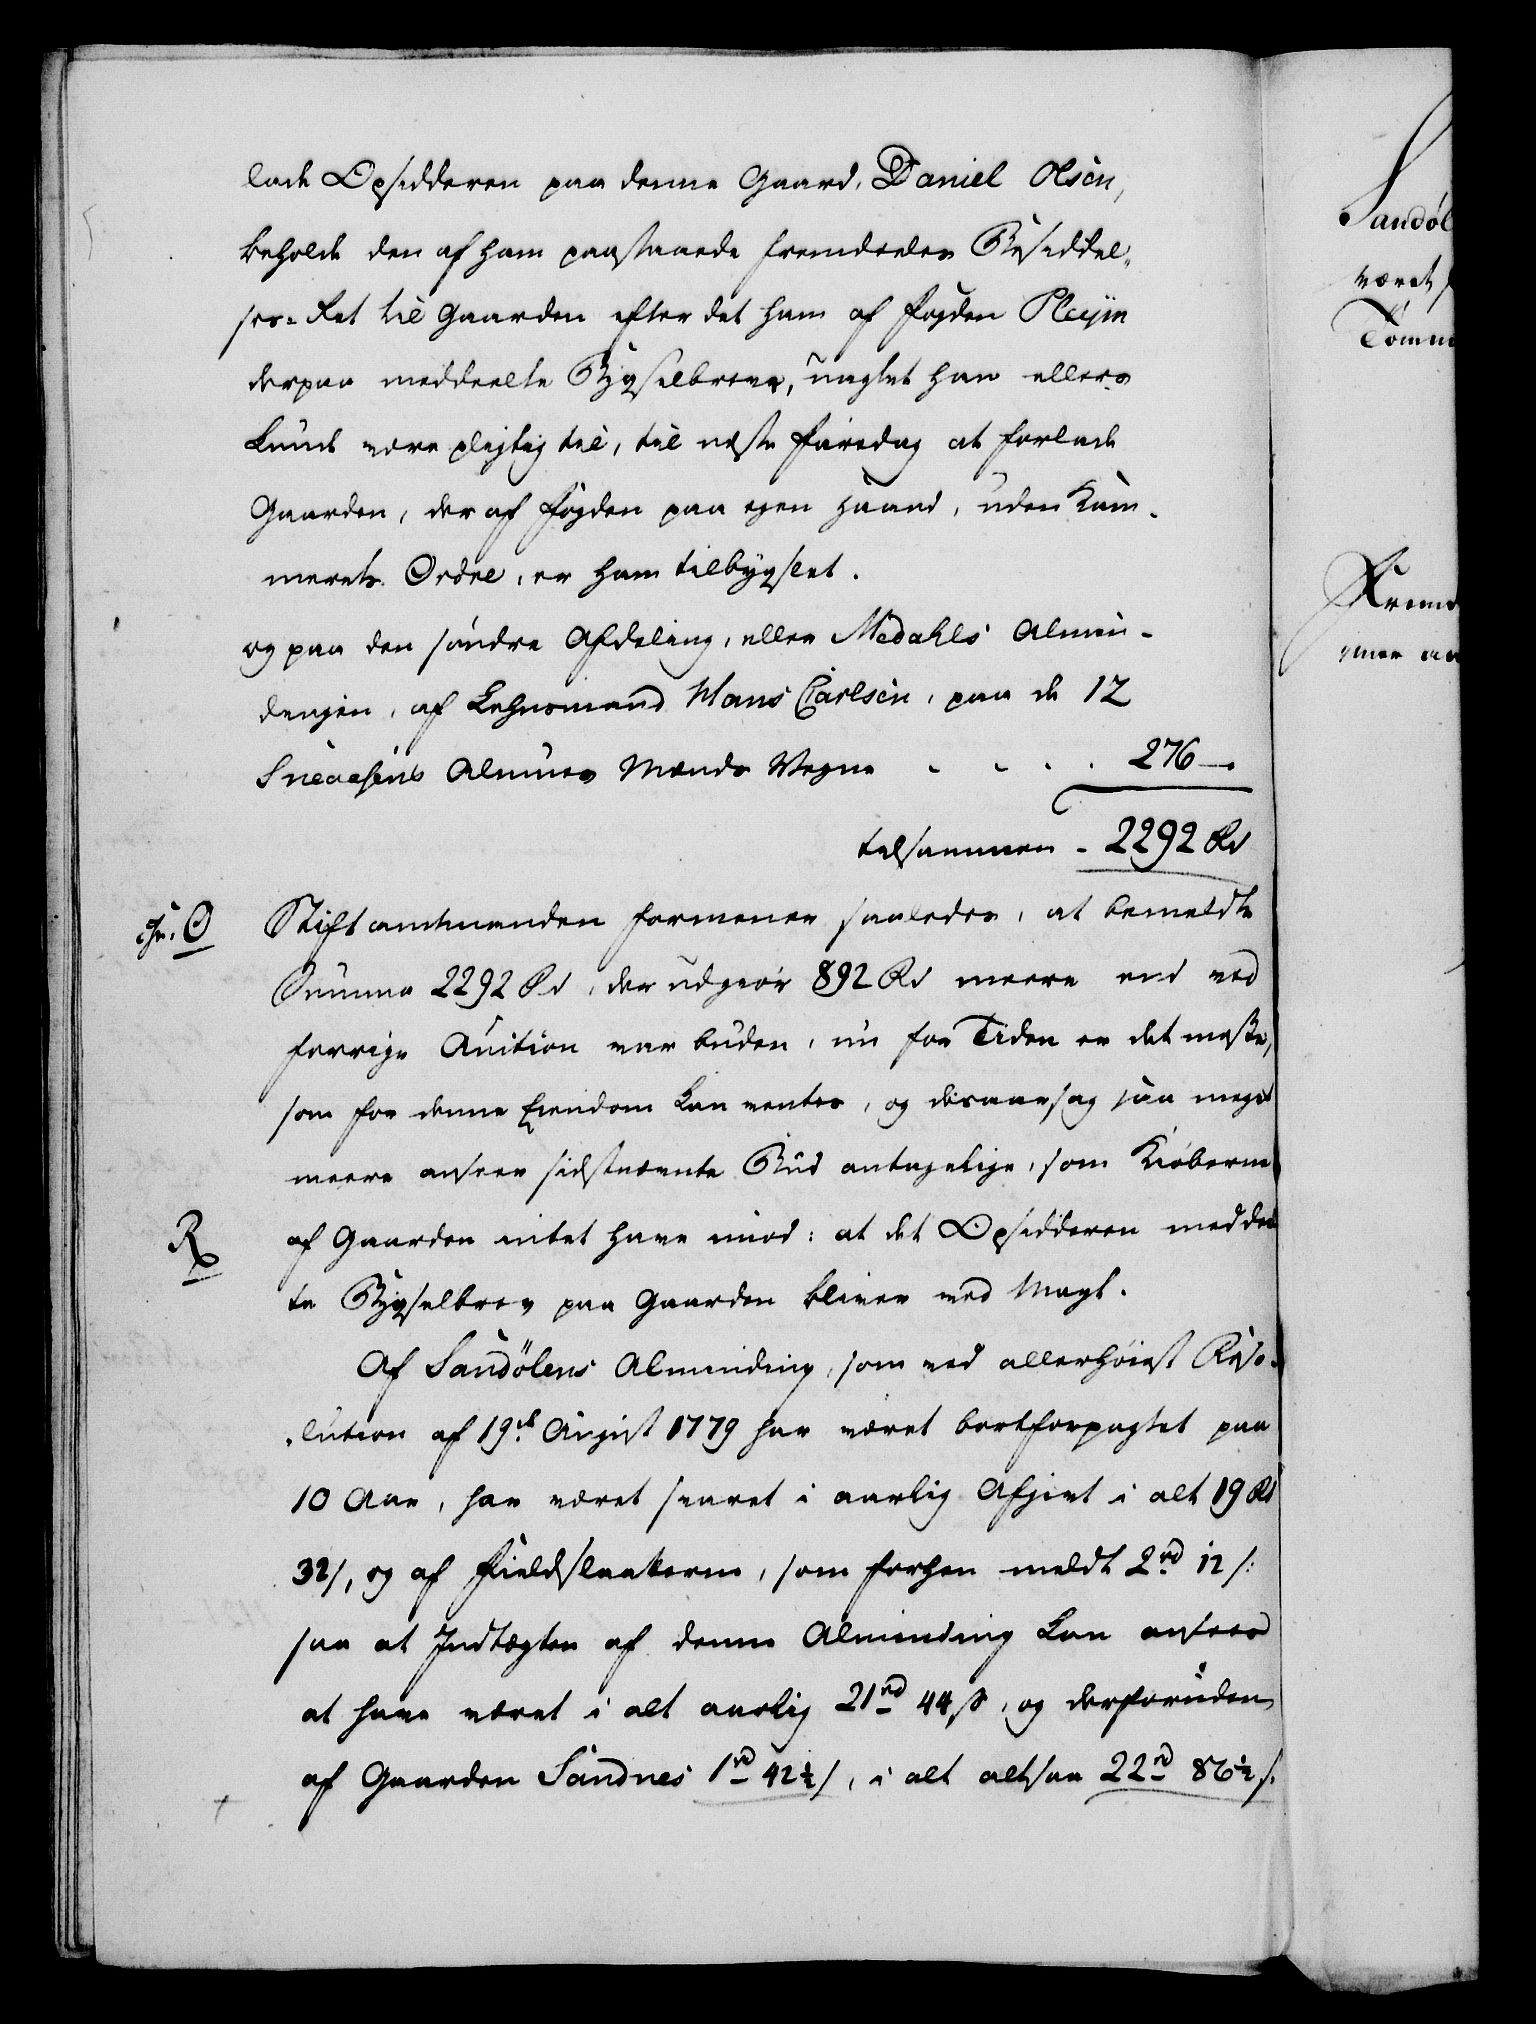 lade Opsidderen paa denne Gaard, Daniel Olsen,
beholde den af ham paastaaede fremdeeles Besiddel„
ses-Ret til Gaarden efter det ham af Fogden Pleijm
derpaa meddeelte Bygselbrev, uagtet han ellers
kunde være pligtig til, til næste Faredag at forlade
Gaarden, der af Fogden paa egen Haand, uden Kam-
merets Ordre, er ham tilbygslet.
og paa den søndre Afdeling, eller Medahls Almin-
dingen, af Lehnsmand Hans Carlsen, paa de 12
Sneaasens Almues Mænds Vegne - - - - 276 -.
tilsammen - 2292 Rd
Stiftamtmanden formener saaledes, at bemeldte
Summa 2292 Rd, der udgiør 892 Rd meere end ved
forrige Auction var buden, nu for Tiden er det meste,
som for denne Eiendom kan ventes, og desaarsag saa meget
meere anseer sidstnævnte Bud antagelige, som Kiøberne
af Gaarden intet have imod: at det Opsidderen meddeel
te Bygselbrev paa Gaarden bliver ved Magt.
Af Sandølens Alminding, som ved allerhøiest Reso-
„lution af 19de August 1779 har været bortforpagtet paa
10 Aar, har været svaret i aarlig Afgivt i alt 19 Rd
32 s, og af Fieldslaatterne, som forhen meldt 2 rd 12 s:
saa at Indtægten af denne Alminding kan ansees
at have været i alt aarlig 21 rd 44 s, og derforuden
af Gaarden Sandnes 1 rd 42½ s, i alt altsaa 22 rd 86½ s.
Sandøl
været
Tømm